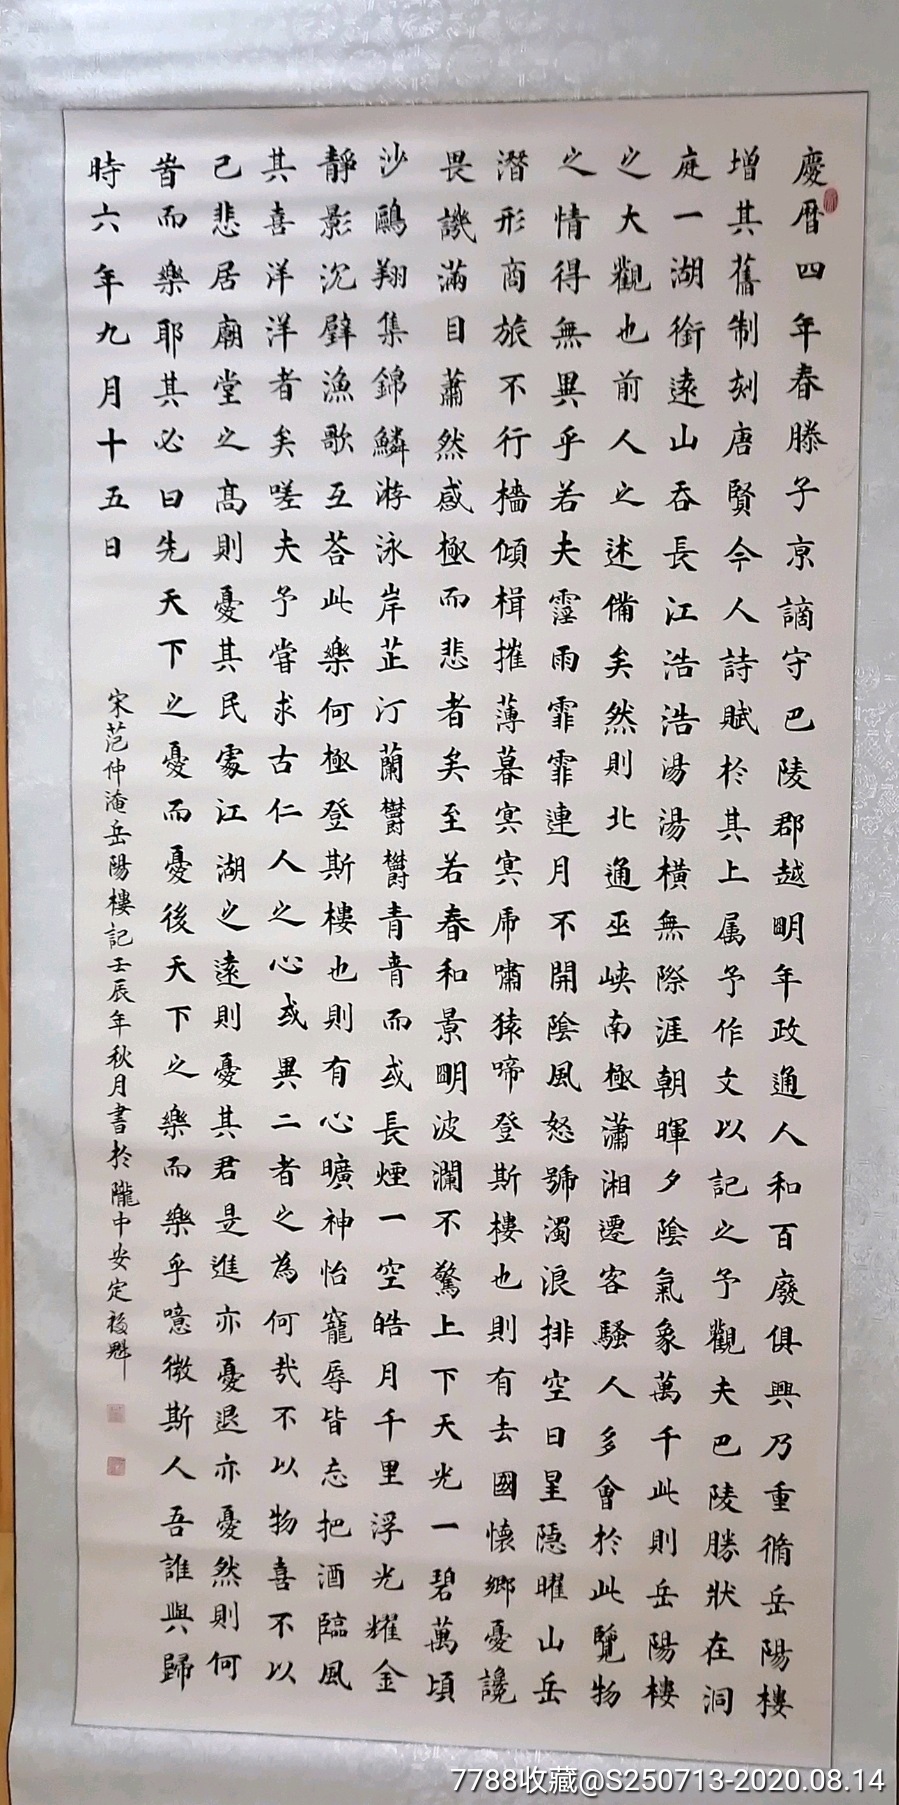 慶曆四年春滕子京謫守巴陵郡越明年政通人和百廢俱興乃重脩岳陽樓
增其舊制刻唐賢今人詩賦於其上属予作文以記之予觀夫巴陵勝狀在洞
庭一湖銜遠山吞長江浩浩湯湯橫無際涯朝暉夕陰氣象萬千此則岳陽樓
之大觀也前人之述備矣然則北通巫峽南極瀟湘遷客騷人多會於此覽物
之情得無異乎若夫霪雨霏霏連月不開陰風怒號濁浪排空日星隱曜山岳
潛形商旅不行檣傾楫摧薄暮冥冥虎嘯猿啼登斯樓也則有去國懷鄉憂讒
畏譏滿目蕭然感極而悲者矣至若春和景明波瀾不驚上下天光一碧萬頃
沙鷗翔集錦鱗游泳岸芷汀蘭鬱鬱青青而或長煙一空皓月千里浮光耀金
靜影沉璧漁歌互荅此樂何極登斯樓也則有心曠神怡寵辱皆忘把酒臨風
其喜洋洋者矣嗟夫予嘗求古仁人之心或異二者之為何哉不以物喜不以
己悲居廟堂之高則憂其民處江湖之遠則憂其君是進亦憂退亦憂然則何
旹而樂耶其必曰先天下之憂而憂後天下之樂而樂乎噫微斯人吾誰與歸
時六年九月十五日
宋范仲淹岳陽樓記壬辰年秋月書於隴中安定
7788收藏@S250713-2020.08.14